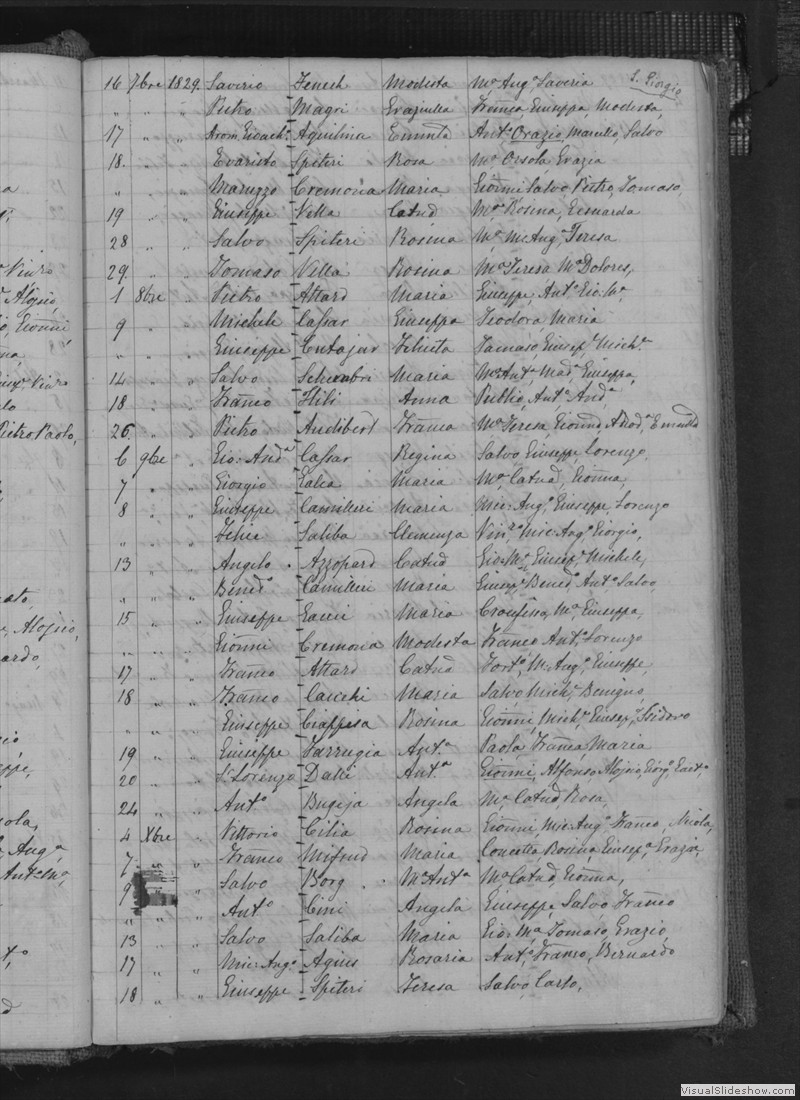 S. Giorgio
16 7bre 1829. Saverio Zenech Modesta Ma Auga Saveria
" " " Pietro Magri Graziulla Franca, Giuseppa, Modesta,
17 " " Aquilina Anto Orazio, Salvo
18. " " Evaristo Spiteri Rosa Ma Orsola Grazia
" " " Maruzzo Cremona Maria Gionni Salvo Pietro, Tomaso,
19 " " Giuseppe Vella Catnd Ma Rosina,
28 " " Salvo Spiteri Rosina Ma Mc Auga Teresa
29. " " Tomaso Vella Rosina Ma Teresa Ma Dolores,
1 8bre " Pietro Attard Maria Giuseppe, Anto Gio. Ma,
9 " " Michele Cassar Giuseppa Teodora, Maria
" " " Giuseppe Cutajar Felicita Tomaso, Giusep, Miche
14 " " Salvo Schembri Maria Ma Anta, Mada, Giuseppa,
18 " " Franco Flili Anna Publio, Anto, Anda
26. " " Pietro Audibert Franca Ma Teresa, Gionni,
6 9bre " Gio: Anda Cassar Regina Salvo, Giuseppe Lorenzo,
7 " " Giorgio Galea Maria Ma Catnd, Gionna,
8 " " Giuseppe Camilleri Maria Mic: Augo, Giuseppe, Lorenzo
" " " Felice Saliba Clemenza Vinzo, Mic: Augo, Giorgio,
13 " " Angelo Azzopard Catnd Gio: Ma, Giusep, Michele,
" " " Bendo Camilleri Maria Giusepe, Bendo, Anto Salvo,
15 " " Giuseppe Gauci Maria Ma Giuseppa,
" " " Gionni Cremona Modesta Franco, Anto, Lorenzo
17 " " Franco Attard Catnd Forto, Mc Augo, Giuseppe,
18 " " Franco Cacchi Maria Salvo, Miche, Benigno,
" " " Giuseppe Ciappesa Rosina Gionni, Miche, Giusepe, Isidoro
19 " " Giuseppe Farrugia Anta Paola, Franca, Maria
20 " " Lorenzo Dalli Anta Gionni, Alfonso, Alojsio, Giorgo, Gaeto
24 " " Anto Bugeja Angela Ma Catnd, Rosa,
4 Xbre " Vittorio Cilia Rosina Gionni, Mic: Augo, Franco, Nicola,
7 " " Franco Mifsud Maria Concetta, Rosina, Giusepa, Grazia,
9 " " Salvo Borg Ma Anta Ma Catnd, Gionna,
" " " Anto Cini Angela Giuseppe, Salvo, Franco
13 " " Salvo Saliba Maria Gio: Ma Tomaso, Grazio,
17 " " Mic: Augo Agius Rosaria Anto, Franco, Bernardo
18 " " Giuseppe Spiteri Teresa Salvo, Carlo,
VisualSlideshow.com